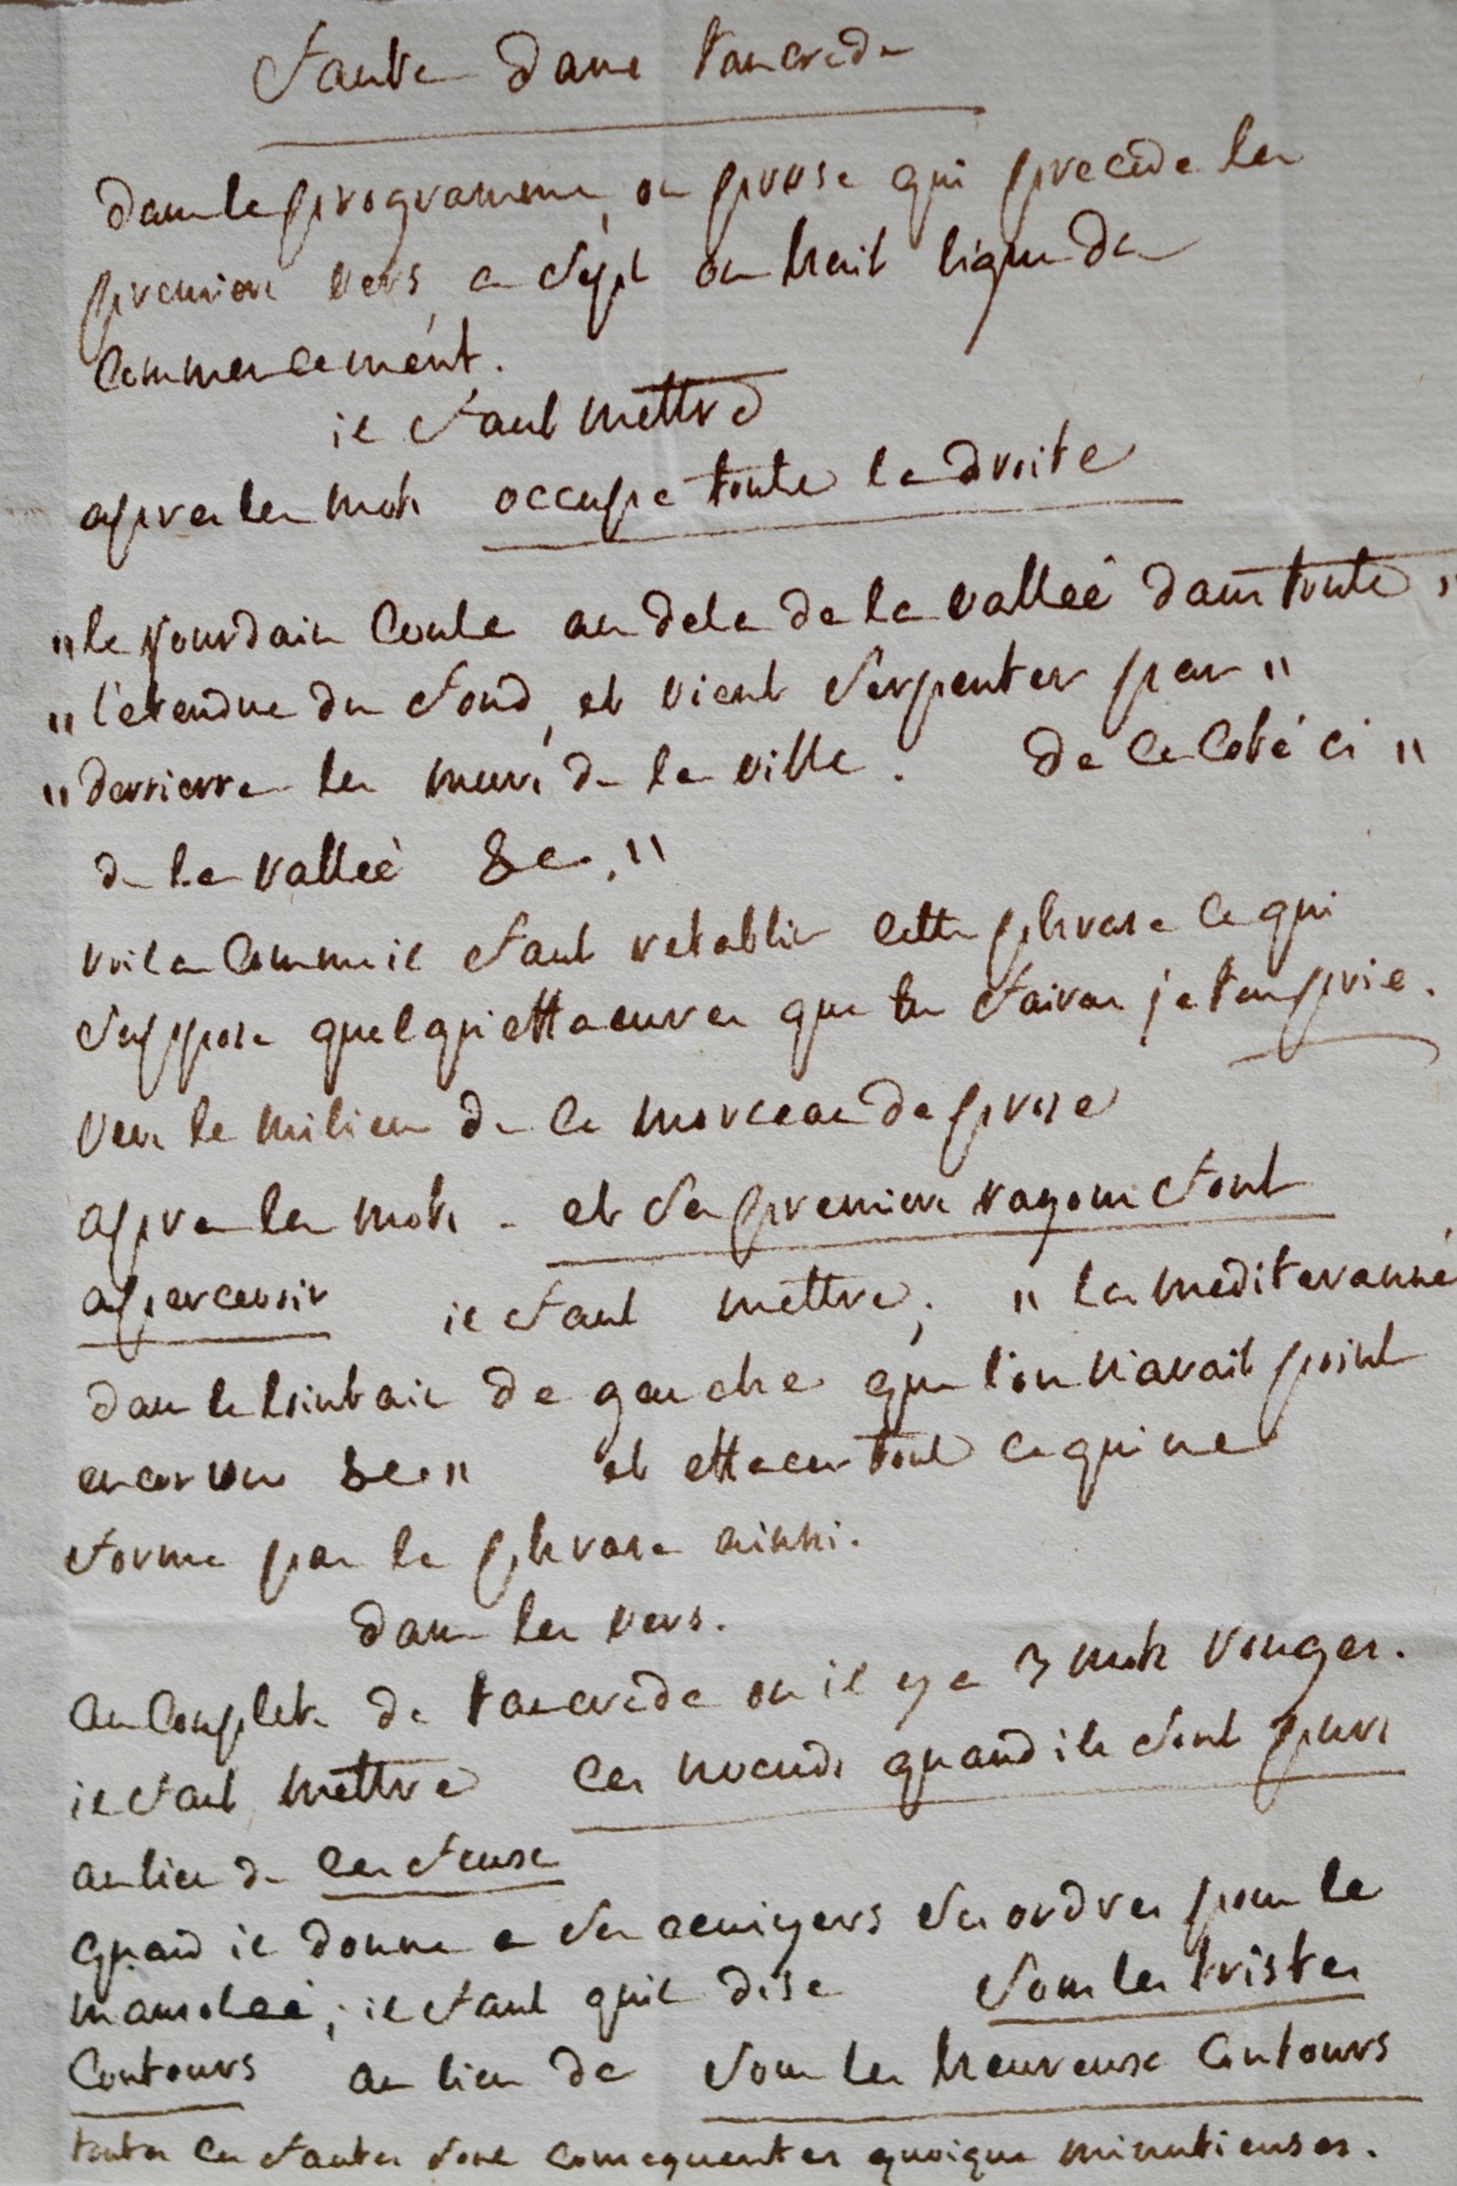 faute dans tancrede
dans le programme ou prose qui precede les
premiers vers, a sept ou huit lignes du
commencement.
il faut mettre
apres les mots occupe toute la droite
"le jourdain coule au dela de la valleé dans toute "
"l'etendue du fond, et vient serpenter par "
"derrierre les murs de la ville. de ce coté ci "
de la valleé &c. "
voila comme il faut retablir cette phrase ce qui
suppose quelqu'effaceures que tu fairas je t'en prie.
vers le milieu de ce morceau de prose
apres les mots - et ses premiers rayons font
appercevoir il faut mettre; " la mediterranné
dans le lointain de gauche que l'on n'avait point
encor vue &c. " et effacer tout ce qui ne
forme pas la phrase ainsi.
dans les vers.
au couplet de tancrede ou il y a 3 mots rouges.
il faut mettre ces noeuds quand ils sont purs
au lieu de ces feux
quand il donne a ses ecuiyers ses ordres pour le
mausoleé; il faut quil dise sous les tristes
contours au lieu de sous les heureux contours
toutes ces fautes sont consequentes quoique minutieuses.